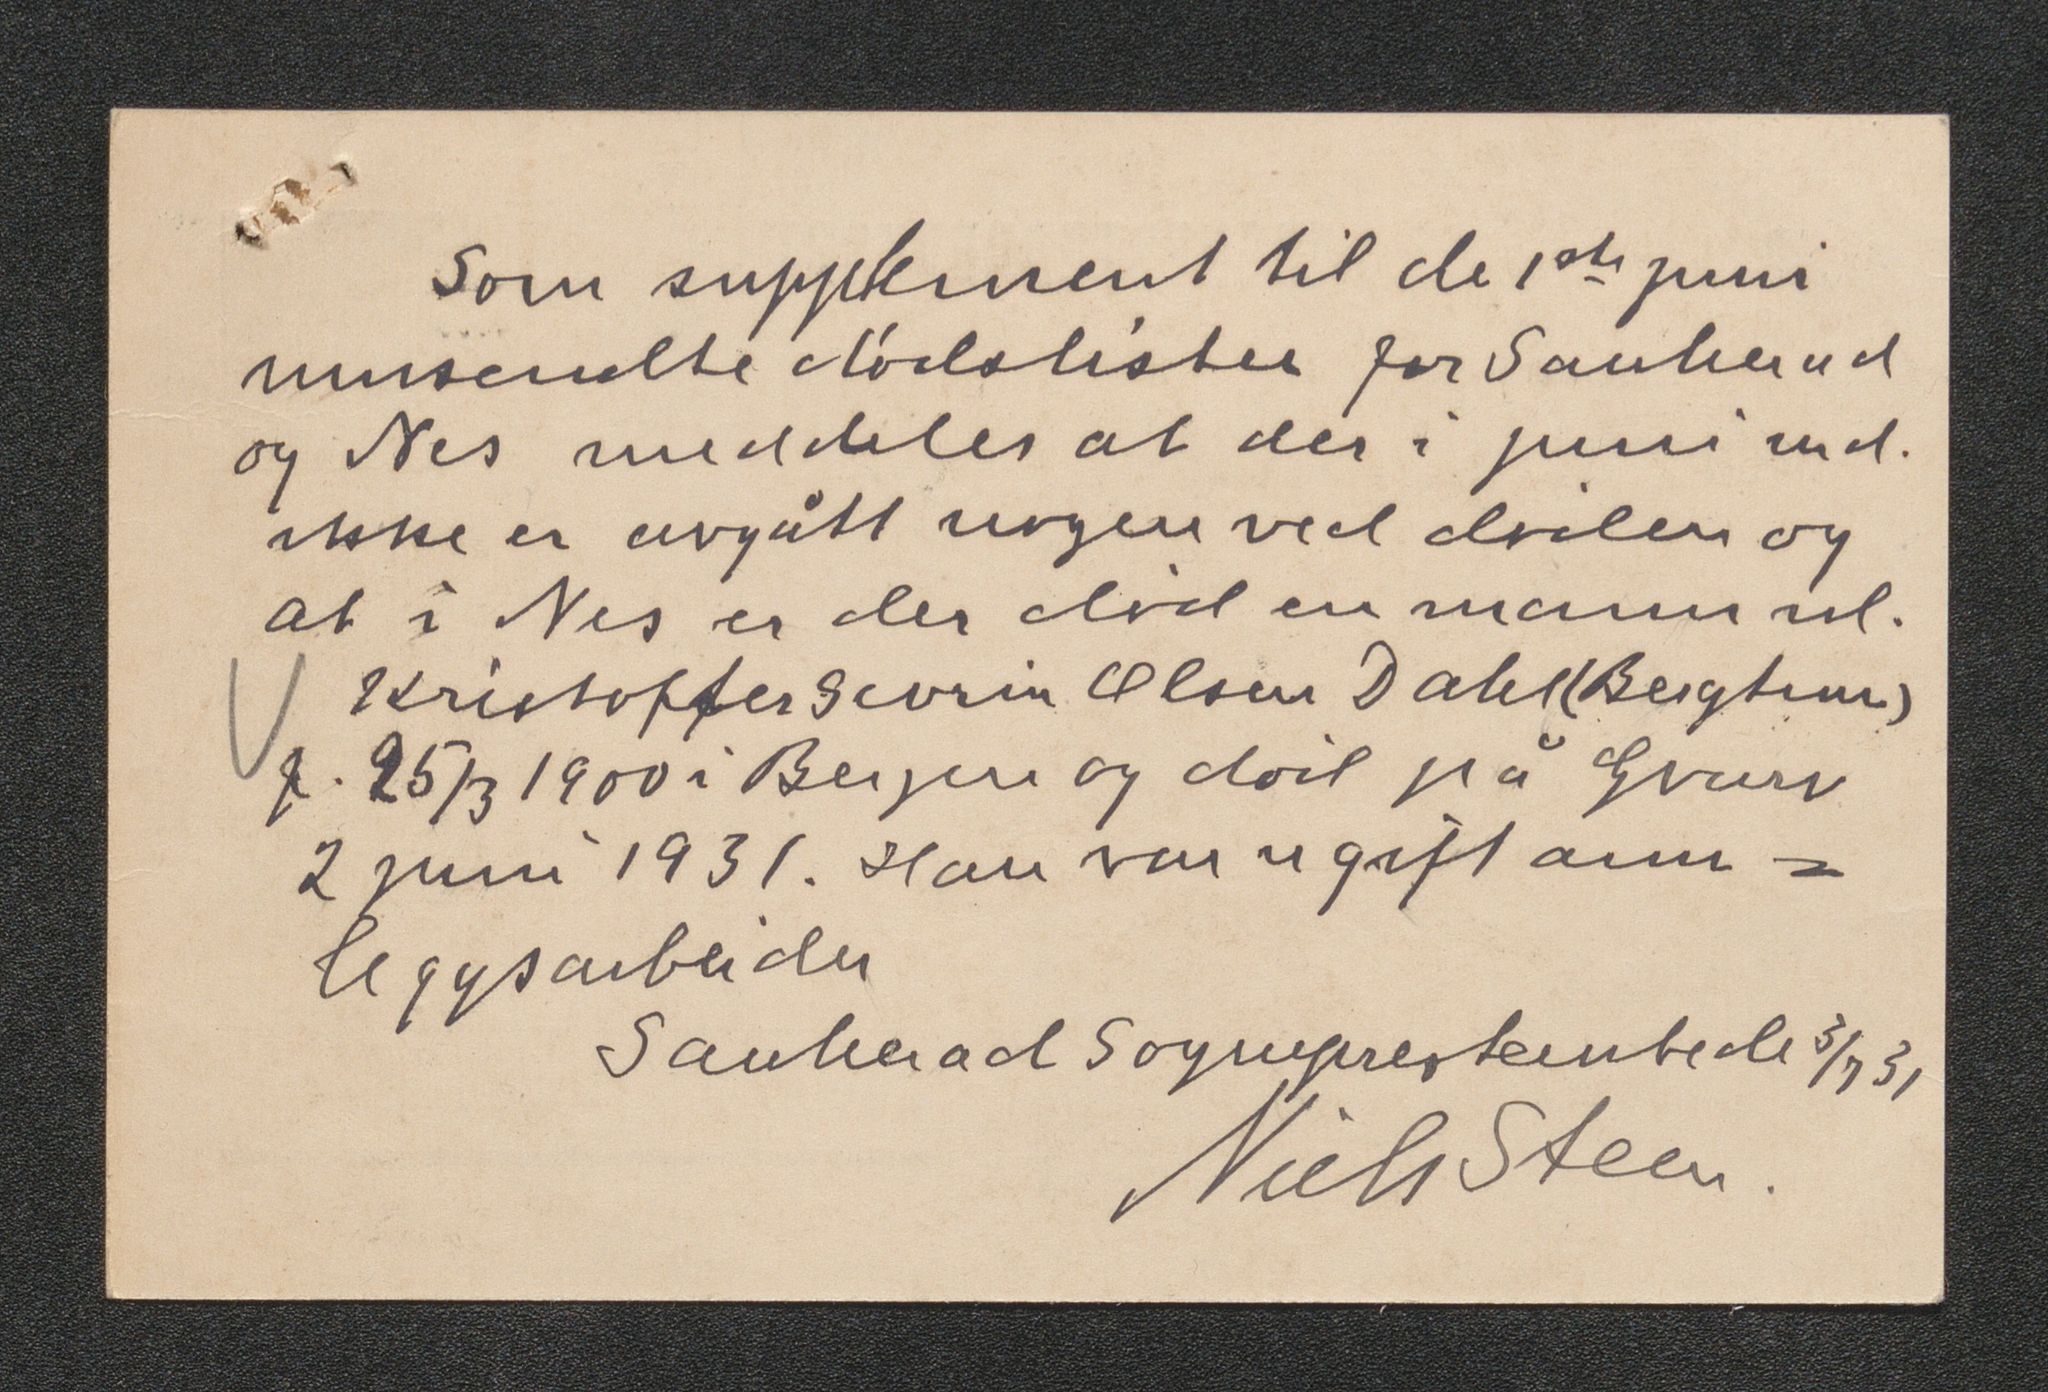 Som supplement til de 1ste juni
innsendte dødslister for Sauherad
og Nes meddeles at der i juni md.
ikke er avgått nogen ved døden og
at i Nes er der död en mann nl.
Kristoffer Severin Olsen Dahl (Bergtun)
f. 25/3 1900 i Bergen og död på Gvarv
2 juni 1931. Han var ugift ann=
leggsarbeider
Sauherad Sogneprestembede 3/7 31
Niels Steen.